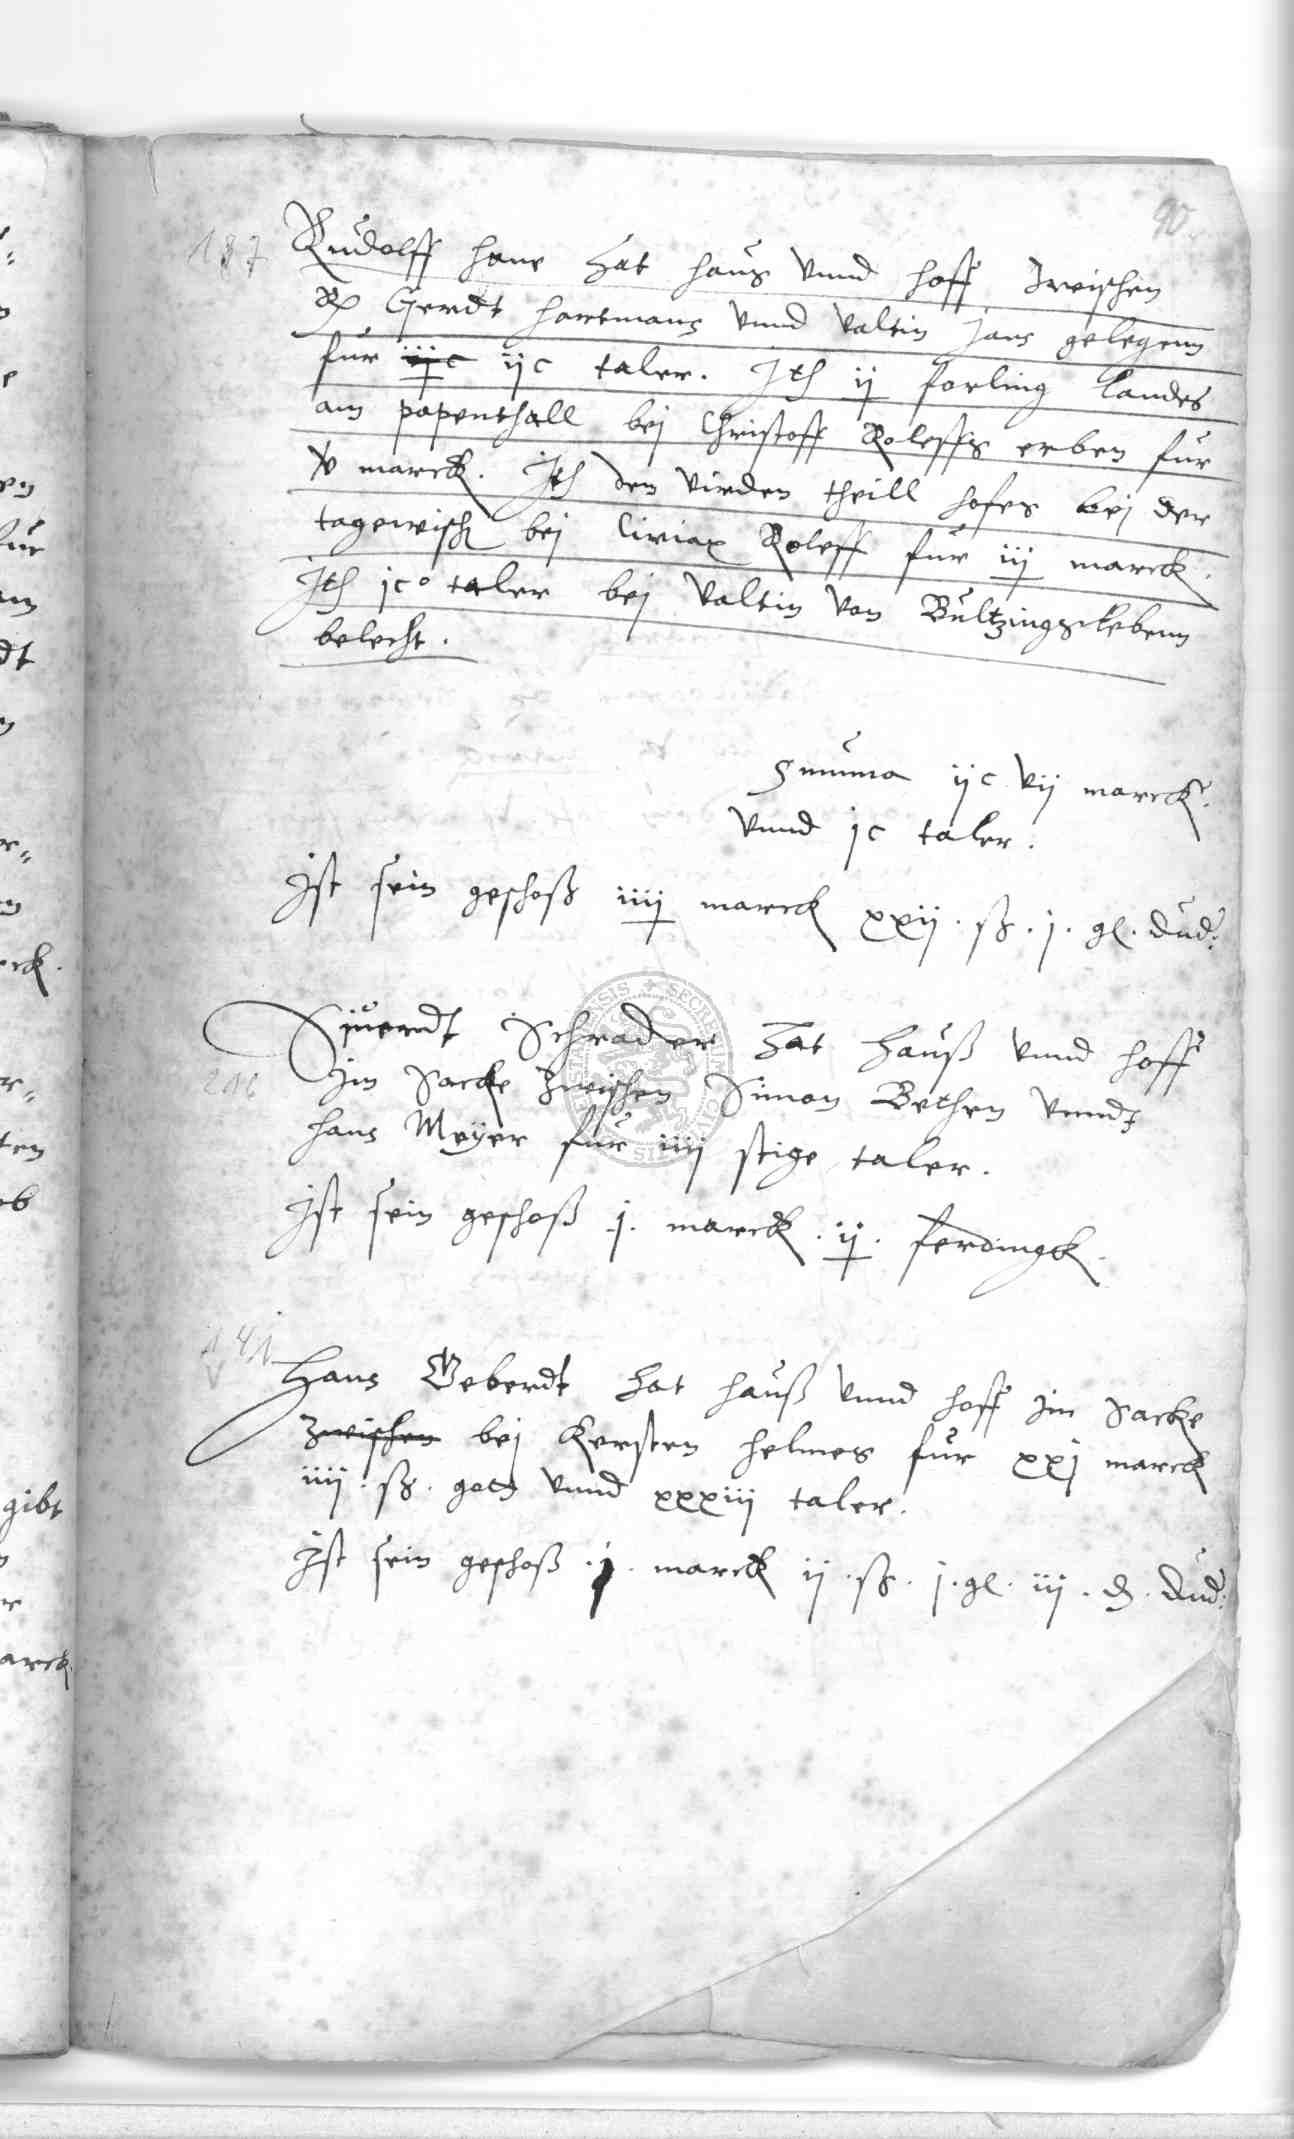 90
187 Rudolff Hans hat haus unnd hoff zwischen
Gerdt Hartmans unnd Valtin Jans gelegenn
fur iijc ijc taler. Jth ij forling landes
am popenthall bej Christoff Roleffs erben fur
v marck. Jth den virden theill hofes bej der
tagewisch bej Ciriax Roleff fur iij marck.
Jth jc taler bej Valtin von Bultzingslebenn
belecht.
Summa ijc vij marck.
unnd jc taler.
Jst sein geschoß iiij marck xxij. ß. j. gl. dud:
Siuerdt Schrader hat hauß unnd hoff
216 Jm Sacke zwischen Simon Bethen unndt
Hans Meyer fur iiij stige taler.
Jst sein geschoß j. marck. ij. ferdingk.
141
Hans Geberdt hat hauß unnd hoff Jm Sacke
zwischen bej Kersten Helmes fur xxj marck
iiij. ß. gots unnd xxxiij taler.
Jst sein geschoß .j. marck ij. ß. j. gl. iij. d. dud:
gibt